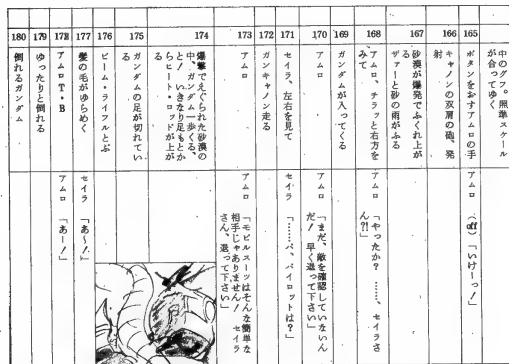 中のグフ。照準スケール
が合ってゆく
165
ボタンをおすアムロの手
アムロ
(off)「いけーっ！」
166
キャノンの双肩の砲、発
射
167
砂漠が爆発でふくれ上が
る
ザァーと砂の雨がふる
168
アムロ、チラッと右方を
みて
アムロ
「やったか？ ……、セイラさ
ん？！」
169
ガンダムが入ってくる
170
アムロ
アムロ
「まだ、敵を確認していないん
だ！ 早く退って下さい」
171
セイラ、左右を見て
セイラ
「……パ、パイロットは？」
172
ガンキャノン走る
173
アムロ
アムロ
「モビルスーツはそんな簡単な
相手じゃありません！ セイラ
さん、退って下さい」
174
爆撃でえぐられた砂漠の
中、ガンダム一歩くる、
と！ いきなり足もとか
らヒート・ロッドが上が
る
175
ガンダムの足が切れてい
く
176
ビーム・ライフルとぶ
177
髪の毛がゆらめく
セイラ
「あ〜！」
178
アムロT・B
アムロ
「あー！」
179
ゆったりと倒れる
180
倒れるガンダム